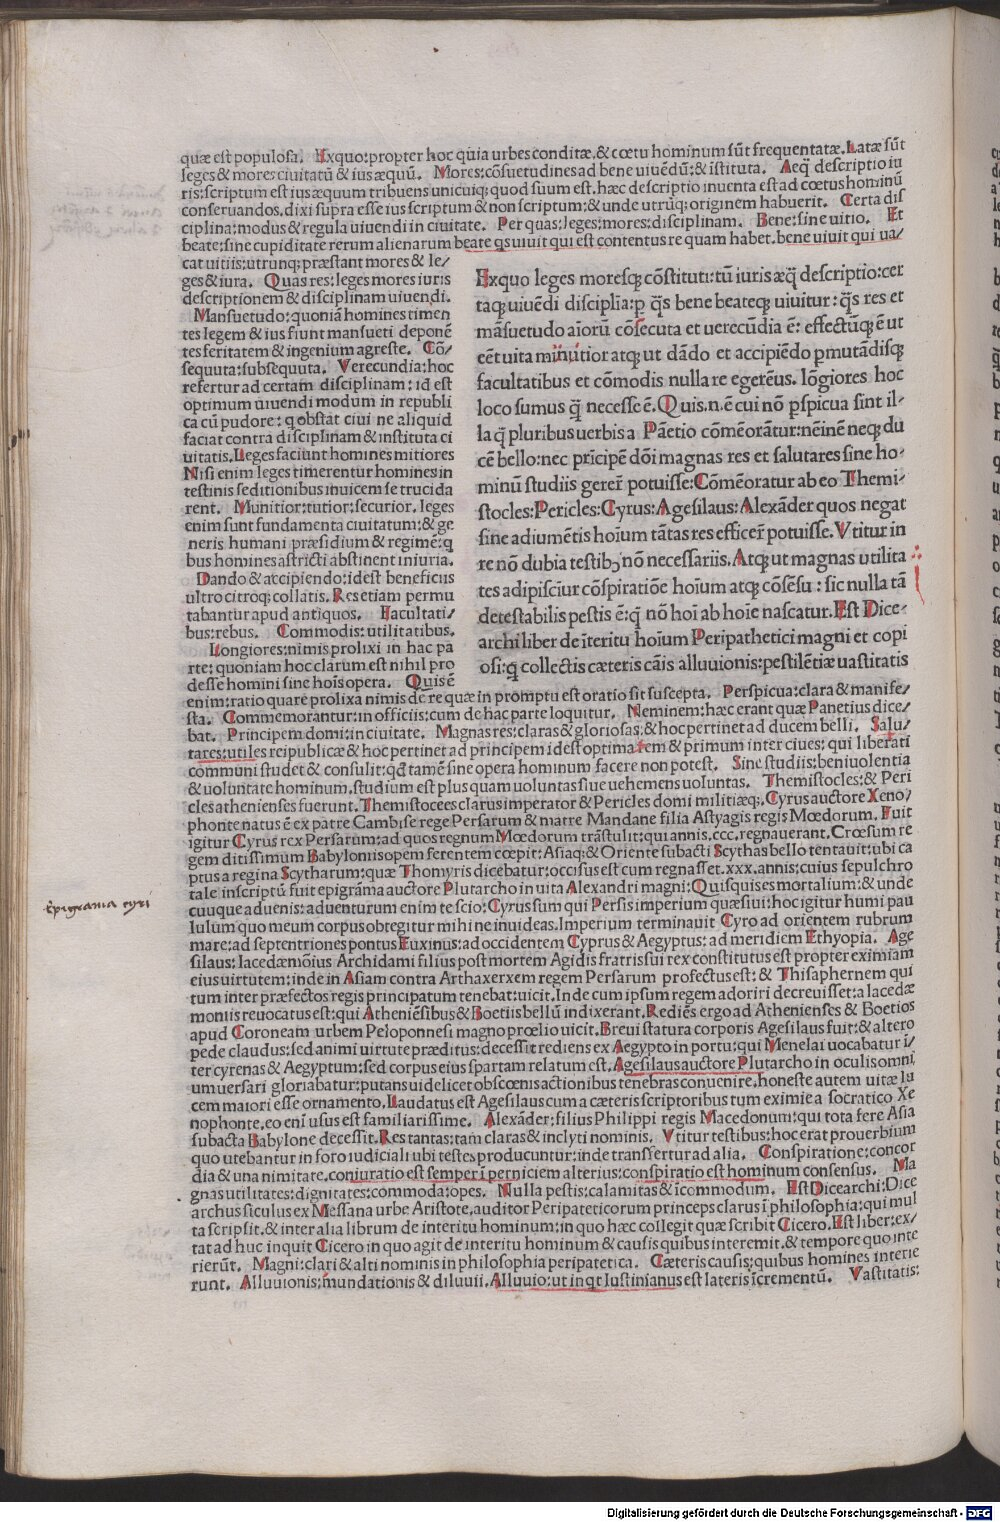 quæ est populosa. Exquo: propter hoc quia urbes conditæ. & cœtu hominum sũt frequentatæ. Latæ sũt
leges & mores ciuitatũ & ius æquũ. Mores: cõsuetudines ad bene uiuẽdũ: & ĩstituta. Aeq̃ descriptio iu
ris: scriptum est ius æquum tribuens unicuiq; quod suum est. hæc descriptio inuenta est ad cœtus hominũ
conseruandos. dixi supra esse ius scriptum & non scriptum: & unde utrũq; originem habuerit. Certa dis
ciplina: modus & regula uiuendi in ciuitate. Per quas: leges: mores: disciplinam. Bene: sine uitio. Et
beate: sine cupiditate rerum alienarum beate q̃s uiuit qui est contentus re quam habet. bene uiuit qui ua/
cat uitiis: utrunq; præstant mores & le/
ges & iura. Quas res: leges mores iuris
descriptionem & disciplinam uiuendi.
Mansuetudo: quoniã homines timen
tes legem & ius fiunt mansueti deponẽ
tes feritatem & ingenium agreste. Cõ/
sequuta: subsequuta. Verecundia: hoc
refertur ad certam disciplinam: id est
optimum uiuendi modum in republi
ca cũ pudore: q obstat ciui ne aliquid
faciat contra disciplinam & instituta ci
uitatis. Leges faciunt homines mitiores
Nisi enim leges timerentur homines in
testinis seditionibus inuicem se trucida
rent. Munitior: tutior: securior. leges
enim sunt fundamenta ciuitatum: & ge
neris humani præsidium & regimẽ: q
bus homines astricti abstinent iniuria.
Dando & accipiendo: idest beneficiis
ultro citroq; collatis. Res etiam permu
tabantur apud antiquos. Facultati/
bus: rebus. Commodis: utilitatibus.
Longiores: nimis prolixi in hac pa
rte: quoniam hoc clarum est nihil pro
desse homini sine hoĩs opera. Quis ẽ
Exquo leges moresq; cõstituti: tũ iuris æq̃ descriptio: cer
taq; uiuẽdi disciplĩa: p q̃s bene beateq; uiuitur: q̃s res et
mãsuetudo aĩorũ cõsecuta et uerecũdia ẽ: effectũq; ẽ ut
eẽt uita minutior atq; ut dãdo et accipiẽdo pmutãdisq;
facultatibus et cõmodis nulla re egerẽus. lõgiores hoc
loco sumus q̃ necesse ẽ. Quis.n.ẽ cui nõ pspicua sint il-
la q̃ pluribus uerbis a Pãetio cõmẽorãtur: neĩnẽ neq; du
cẽ bello: nec prĩcipẽ dõi magnas res et salutares sine ho-
minũ studiis gerer̃ potuisse: Cõmẽoratur ab eo Themi-
stocles: Pericles: Cyrus: Agesilaus: Alexãder quos negat
sine adiumẽtis hoĩum tãtas res efficer̃ potuisse. Vtitur in
re nõ dubia testibꝰ nõ necessariis. Atq; ut magnas utilita
tes adipiscĩur cõspiratiõe hoĩum atq; cõsẽsu: sic nulla tã
detestabilis pestis ẽ: q̃ nõ hoĩ ab hoĩe nascatur. Est Dice-
archi liber de ĩteritu hoĩum Peripathetici magni et copi
osi: q̃ collectis cæteris cãis alluuionis: pestilẽtiæ uastitatis
enim: ratio quare prolixa nimis de re quæ in promptu est oratio sit suscepta. Perspicua: clara & manife/
sta. Commemorantur: in officiis: cum de hac parte loquitur. Neminem: hæc erant quæ Panetius dice/
bat. Principem domi: in ciuitate. Magnas res: claras & gloriosas: & hoc pertinet ad ducem belli. Salu/
tares: utiles reipublicæ & hoc pertinet ad principem idest optimatem & primum inter ciues: qui liberati
communi studet & consulit: qđ tamẽ sine opera hominum facere non potest. Sine studiis: beniuolentia
& uoluntate hominum, studium est plus quam uoluntas siue uehemens uoluntas. Themistocles: & Peri
cles athenienses fuerunt. Themistocees clarus imperator & Pericles domi militiæq;. Cyrus auctore Xeno/
phonte natus ẽ ex patre Cambise rege Persarum & matre Mandane filia Astyagis regis Mœdorum. Fuit
igitur Cyrus rex Persarum: ad quos regnum Mœdorum trãstulit: qui annis.ccc. regnauerant. Crœsum re
gem ditissimum Babylonis opem ferentem cœpit: Asiaq; & Oriente subacti Scythas bello tentauit: ubi ca
ptus a regina Scytharum: quæ Thomyris dicebatur: occisus est cum regnasset.xxx. annis: cuius sepulchro
tale inscriptũ fuit epigrãma auctore Plutarcho in uita Alexandri magni: Quisquises mortalium: & unde
cuuque aduenis: aduenturum enim te scio: Cyrus sum qui Persis imperium quæsiui: hoc igitur humi pau
lulum quo meum corpus obtegitur mihi ne inuideas. Imperium terminauit Cyro ad orientem rubrum
mare: ad septentriones pontus Euxinus: ad occidentem Cyprus & Aegyptus: ad meridiem Ethyopia. Age
silaus: lacedæmõius Archidami filius post mortem Agidis fratris sui rex constitutus est propter eximiam
eius uirtutem: inde in Asiam contra Arthaxerxem regem Persarum profectus est: & Thisaphernem qui
tum inter præfectos regis principatum tenebat: uicit. Inde cum ipsum regem adoriri decreuisset: a lacedæ
moniis reuocatus est: qui Atheniẽsibus & Boetiis bellũ indixerant. Rediẽs ergo ad Athenienses & Boetios
apud Coroneam urbem Peloponnesi magno prœlio uicit. Breui statura corporis Agesilaus fuit: & altero
pede claudus: sed animi uirtute præditus: decessit rediens ex Aegypto in portu: qui Menelai uocabatur ĩ/
ter cyrenas & Aegyptum: sed corpus eius spartam relatum est. Agesilaus auctore Plutarcho in oculis omni
um uersari gloriabatur: putans uidelicet obscœnis actionibus tenebras conuenire. honeste autem uitæ lu
cem maiori esse ornamento. Laudatus est Agesilaus cum a cæteris scriptoribus tum eximie a socratico Xe
nophonte. eo enĩ usus est familiarissime. Alexãder: filius Philippi regis Macedonum: qui tota fere Asia
subacta Babylone decessit. Res tantas: tam claras & inclyti nominis. Vtitur testibus: hoc erat prouerbium
quo utebantur in foro iudiciali ubi testes producuntur: inde transfertur ad alia. Conspiratione: concor
dia & una nimitate. coniuratio est semper ĩ perniciem alterius: conspiratio est hominum consensus. Ma
gnas utilitates: dignitates: commoda: opes. Nulla pestis: calamitas & ĩcommodum. Est Dicearchi: Dice
archus siculus ex Messana urbe Aristote. auditor Peripateticorum princeps clarus ĩ philosophia: qui mul
ta scripsit. & inter alia librum de interitu hominum: in quo hæc collegit quæ scribit Cicero. Est liber: ex/
tat ad huc inquit Cicero in quo agit de interitu hominum & causis quibus interemit. & tempore quo inte
rierũt. Magni: clari & alti nominis in philosophia peripatetica. Cæteris causis: quibus homines interie
runt. Alluuionis: inundationis & diluuii. Alluuio: ut inqt Iustinianus est lateris ĩcrementũ. Vastitatis:
Epigrama cyri
Digitalisierung gefördert durch die Deutsche Forschungsgemeinschaft - DFG